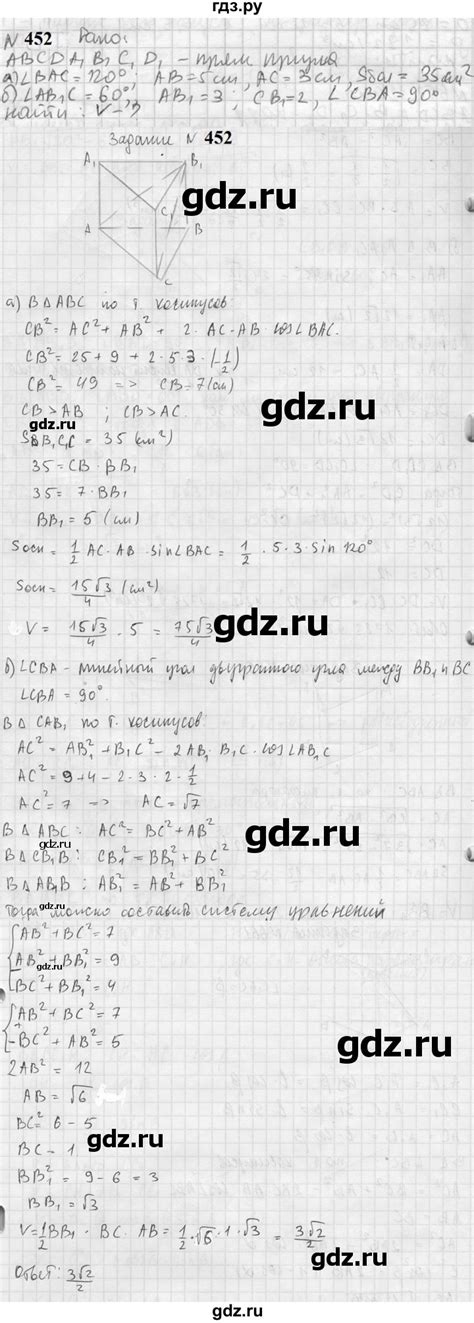 гдз.ру
N 452 Дано:
ABCDA₁B₁C₁D₁ - прям призма
а) ∠BAC = 120°; AB = 5 см, AC = 3 см, Sбал = 35 см²
б) ∠AB₁C = 60°, AB₁ = 3; CB₁ = 2, ∠CBA = 90°
найти: V - ?
Задание N 452
A₁ B₁
C₁
A B
C
gdz.ru
а) В △ ABC по т. косинусов:
CB² = AC² + AB² + 2 · AC · AB cos∠BAC.
CB² = 25 + 9 + 2 · 5 · 3 · (-1/2)
CB² = 49 => CB = 7 (см)
CB > AB ; CB > AC.
gdz.ru
SBB₁C₁C = 35 (см²)
35 = CB · BB₁
35 = 7 · BB₁
BB₁ = 5 (см)
Sосн = 1/2 AC · AB · sin∠BAC = 1/2 · 5 · 3 · sin 120°
Sосн = 15√3/4 (см²)
V = 15√3/4 · 5 = 75√3/4
gdz.ru
б) ∠CBA - линейный угол двугранного угла между BB₁ и BC
∠CBA = 90°.
В △ CAB₁ по т. косинусов
AC² = AB₁² + B₁C² - 2AB₁ · B₁C · cos∠AB₁C
AC² = 9 + 4 - 2 · 3 · 2 · 1/2
AC² = 7 => AC = √7
gdz.ru
В △ ABC : AC² = BC² + AB²
gdz.ru
В △ CB₁B : CB₁² = BB₁² + BC²
В △ AB₁B : AB₁² = AB² + BB₁²
Тогда можно составить систему уравнений
AB² + BC² = 7
gdz.ru
AB² + BB₁² = 9
BC² + BB₁² = 4
AB² + BC² = 7
-BC² + AB² = 5
gdz.ru
2AB² = 12
AB = √6
BC² = 6 - 5
BC - 1
gdz.ru
BB₁² = 9 - 6 = 3
BB₁ = √3
V = 1/2 BB₁ · BC · AB = 1/2 · √6 · 1 · √3 = 3√2/2
Ответ: 3√2/2
gdz.ru
гдз.ру